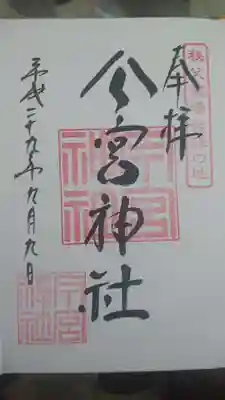 奉拝
今宮神社
平成二十九年九月九日
今宮
神社